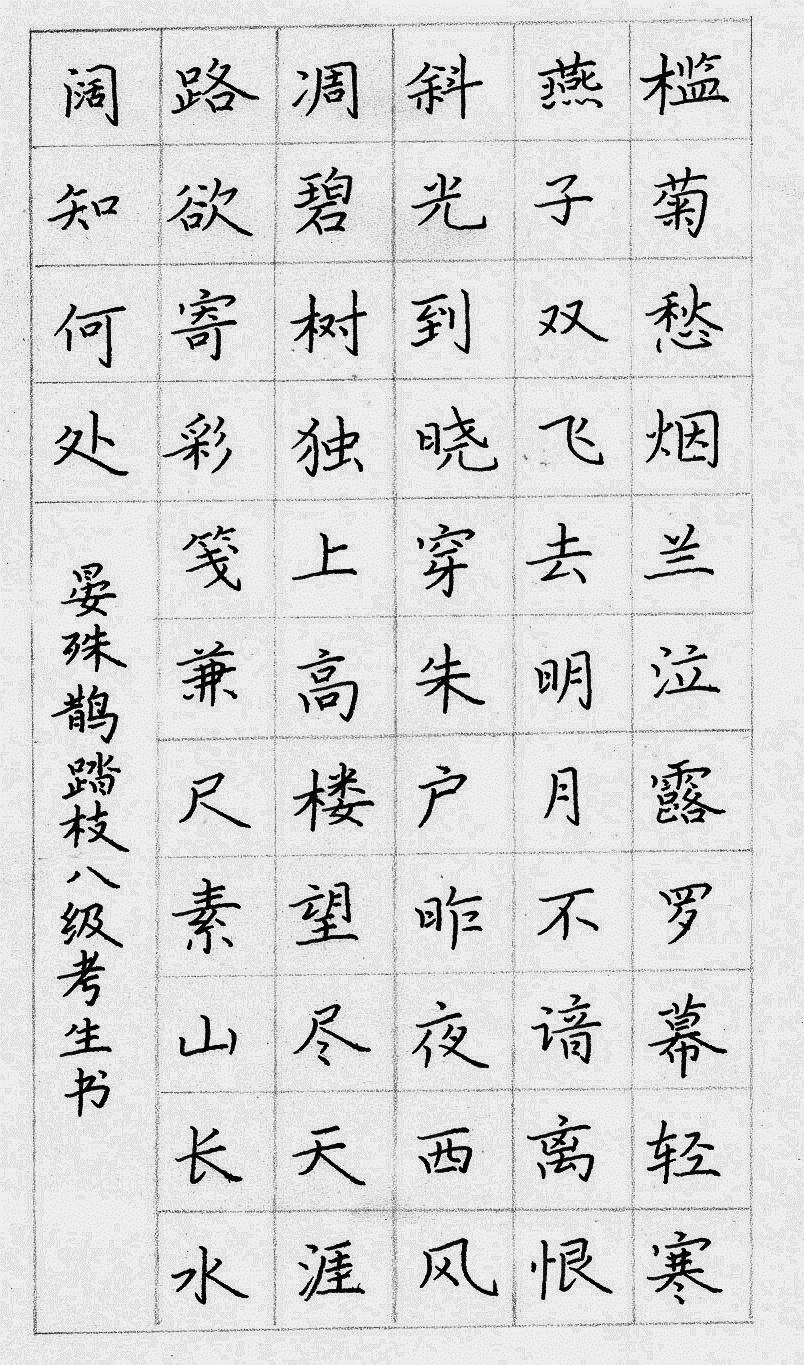 槛菊愁烟兰泣露罗幕轻寒
燕子双飞去明月不谙离恨
斜光到晓穿朱户昨夜西风
凋碧树独上高楼望尽天涯
路欲寄彩笺兼尺素山长水
阔知何处
晏殊鹊踏枝八级考生书